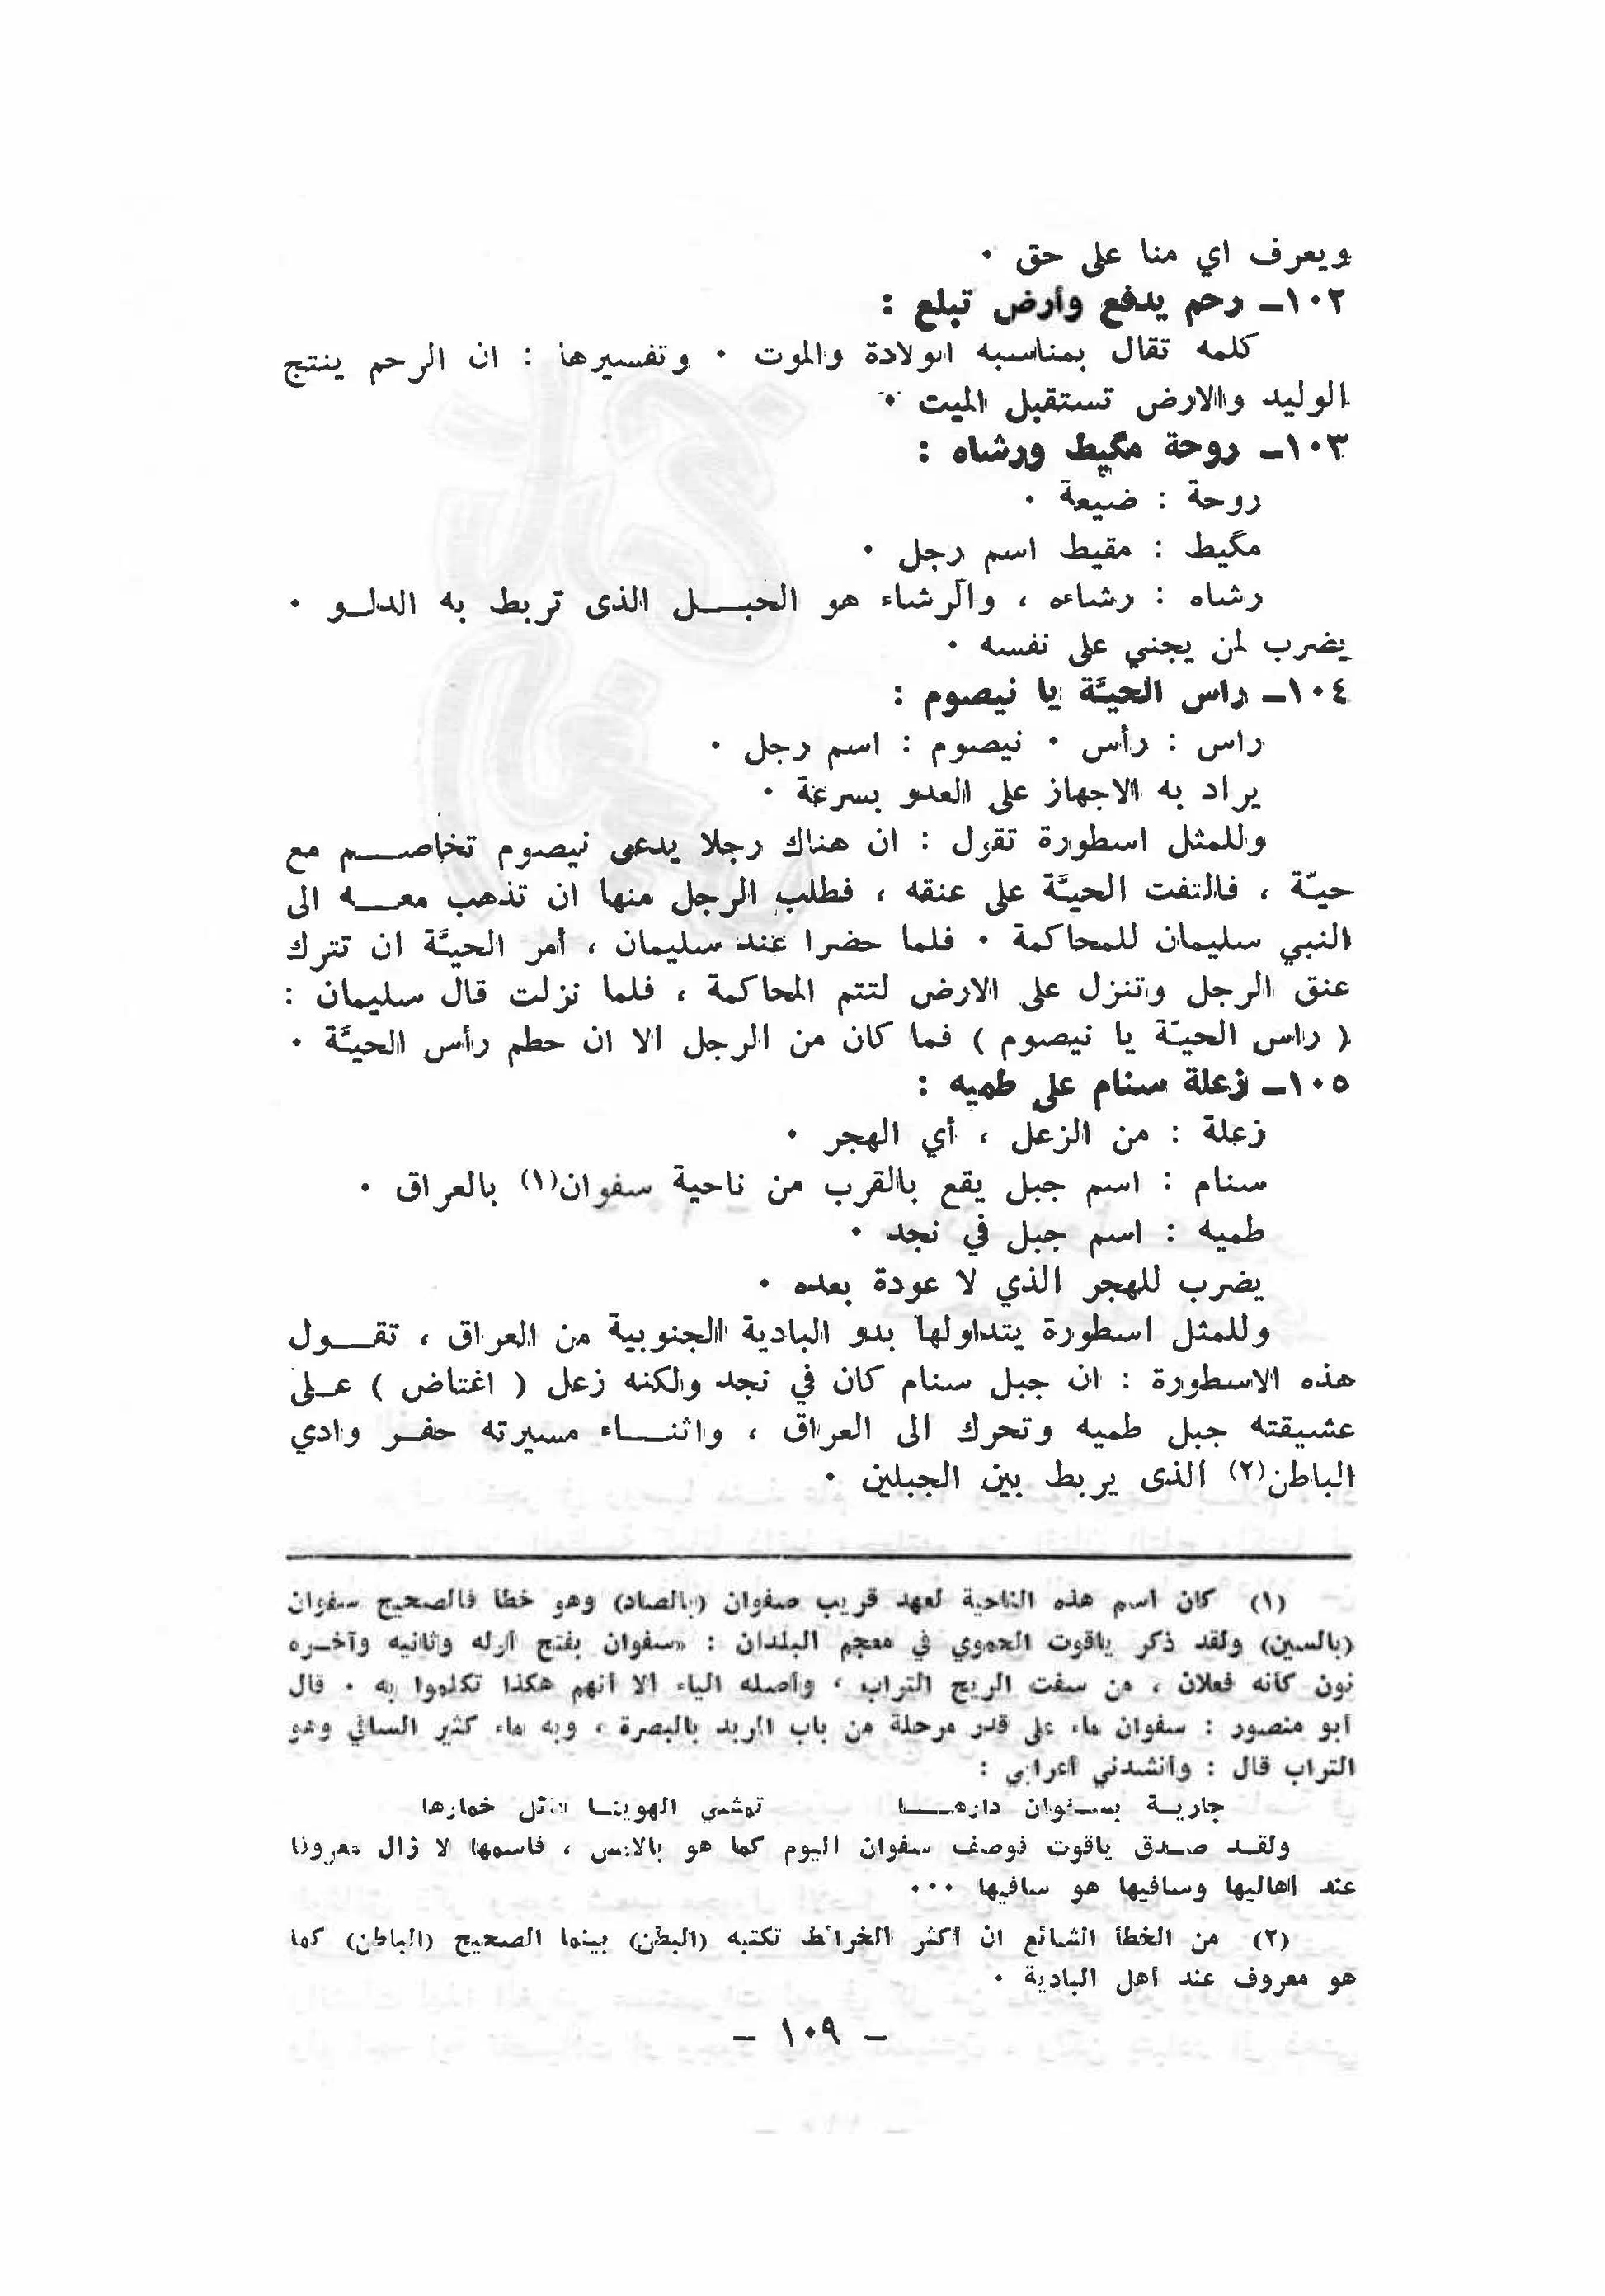 ويعرف اي منا على حق .
١٠٢ــ رحم يدفع وأرض تبلع :
كلمه تقال بمناسبه الولادة والموت . وتفسيرها : ان الرحم ينتج
الوليد والارض تستقبل الميت .
١٠٣ــ روحة مگيط ورشاه :
روحة : ضيعة .
مگيط : مقيط اسم رجل .
رشاه : رشاءه ، والرشاء هو الحبــل الذى تربط به الدلــو .
يضرب لمن يجني على نفسه .
١٠٤ــ راس الحيَّة يا نيصوم :
راس : رأس . نيصوم : اسم رجل .
يراد به الاجهاز على العدو بسرعة .
وللمثل اسطورة تقول : ان هناك رجلا يدعى نيصوم تخاصــم مع
حيّة ، فالتفت الحيَّة على عنقه ، فطلب الرجل منها ان تذهب معــه الى
النبي سليمان للمحاكمة . فلما حضرا عند سليمان ، أمر الحيَّة ان تترك
عنق الرجل وتنزل على الارض لتتم المحاكمة ، فلما نزلت قال سليمان :
( راس الحيّة يا نيصوم ) فما كان من الرجل الا ان حطم رأس الحيَّة .
١٠٥ــ زعلة سنام على طميه :
زعلة : من الزعل ، أي الهجر .
سنام : اسم جبل يقع بالقرب من ناحية سفوان(١) بالعراق .
طميه : اسم جبل في نجد .
يضرب للهجر الذي لا عودة بعده .
وللمثل اسطورة يتداولها بدو البادية الجنوبية من العراق ، تقــول
هذه الاسطورة : ان جبل سنام كان في نجد ولكنه زعل ( اغتاض ) عــلى
عشيقته جبل طميه وتحرك الى العراق ، واثنــاء مسيرته حفــر وادي
الباطن(٢) الذى يربط بين الجبلين .
(١) كان اسم هذه الناحية لعهد قريب صفوان (بالصاد) وهو خطا فالصحيح سفوان
(بالسين) ولقد ذكر ياقوت الحموي في معجم البلدان : «سفوان بفتح أوله وثانيه وآخــره
نون كأنه فعلان ، من سفت الريح التراب ، وأصله الياء الا أنهم هكذا تكلموا به . قال
أبو منصور : سفوان ماء على قدر مرحلة من باب المربد بالبصرة ، وبه ماء كثير السافي وهو
التراب قال : وأنشدني أعرابي :
جاريــة بســفوان دارهــا تمشي الهوينــا مائل خمارها
ولقــد صــدق ياقوت فوصف سفوان اليوم كما هو بالامس ، فاسمها لا زال معروفا
عند اهاليها وسافيها هو سافيها ...
(٢) من الخطأ الشائع ان أكثر الخرائط تكتبه (البطن) بينما الصحيح (الباطن) كما
هو معروف عند أهل البادية .
– ١٠٩ –